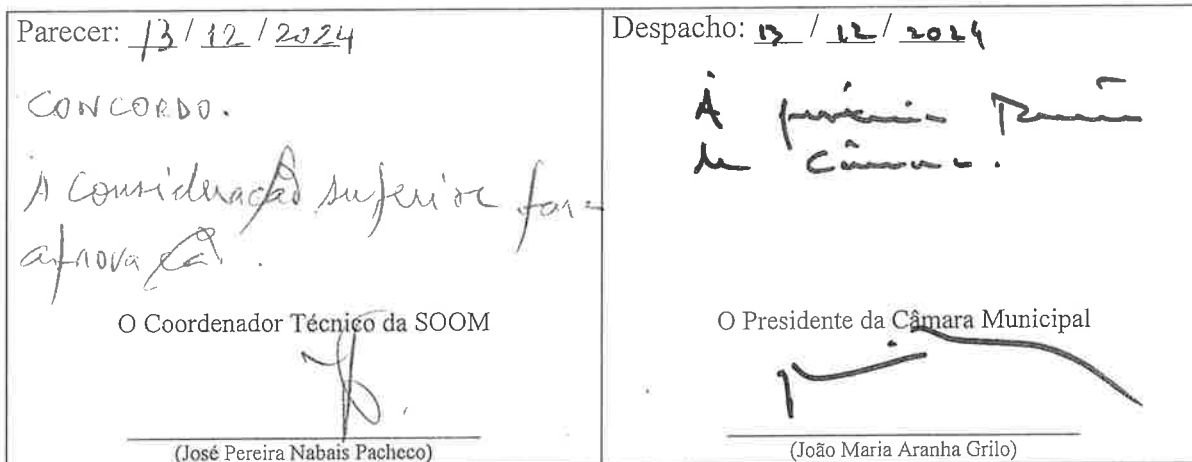 Parecer: 13 / 12 / 2024
CONCORDO.
À consideração superior para
aprovação.
O Coordenador Técnico da SOOM
(José Pereira Nabais Pacheco)
Despacho: 13 / 12 / 2024
À próxima Reunião
de Câmara.
O Presidente da Câmara Municipal
(João Maria Aranha Grilo)